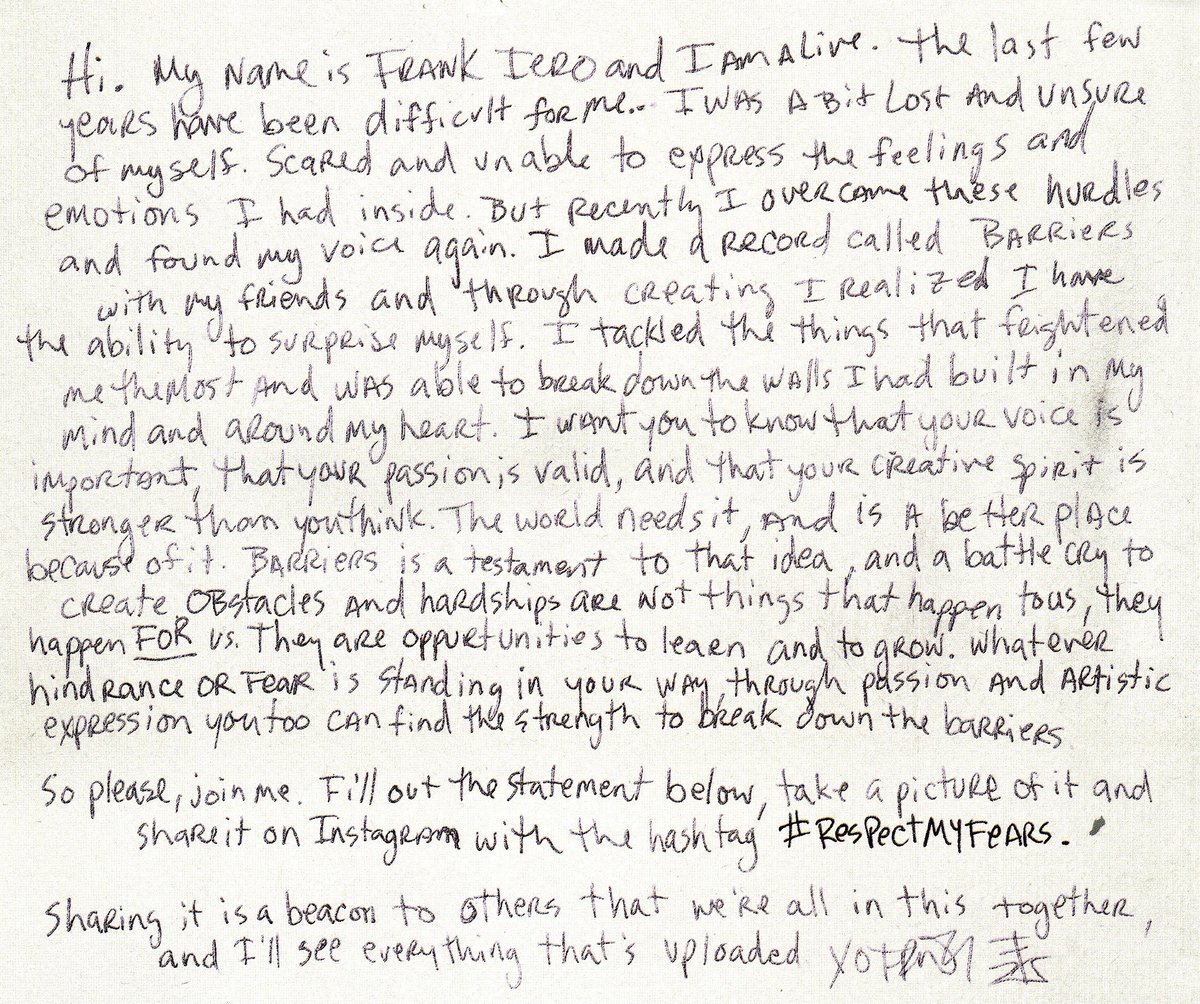 Hi. My Name is FRANK IERO and I AM Alive. The last few
years have been difficult for me.. I WAS A Bit Lost And unsure
of myself. Scared and unable to express the feelings and
emotions I had inside. But recently I overcame these hurdles
and found my voice again. I made a RECORD called BARRIERS
with my friends and through creating I realized I have
the ability to surprise myself. I tackled the things that frightened
me the Most And WAS able to break down the walls I had built in My
mind and around my heart. I want you to know that your voice is
important, that your passion is valid, and that your creative spirit is
stronger than you think. The world needs it, And is A better place
because of it. BARRIERS is a testament to that idea, and a battle cry to
create OBstacles And hardships are Not things that happen to us, they
happen FOR us. They are oppurtunities to learn and to grow. Whatever
hindrance OR Fear is standing in your way, through passion And Artistic
expression you too CAN find the strength to break down the barriers
So please, join me. Fill out the statement below, take a picture of it and
share it on Instagram with the hashtag #RespectMyFears.
Sharing it is a beacon to others that we're all in this together,
and I'll see everything that's uploaded